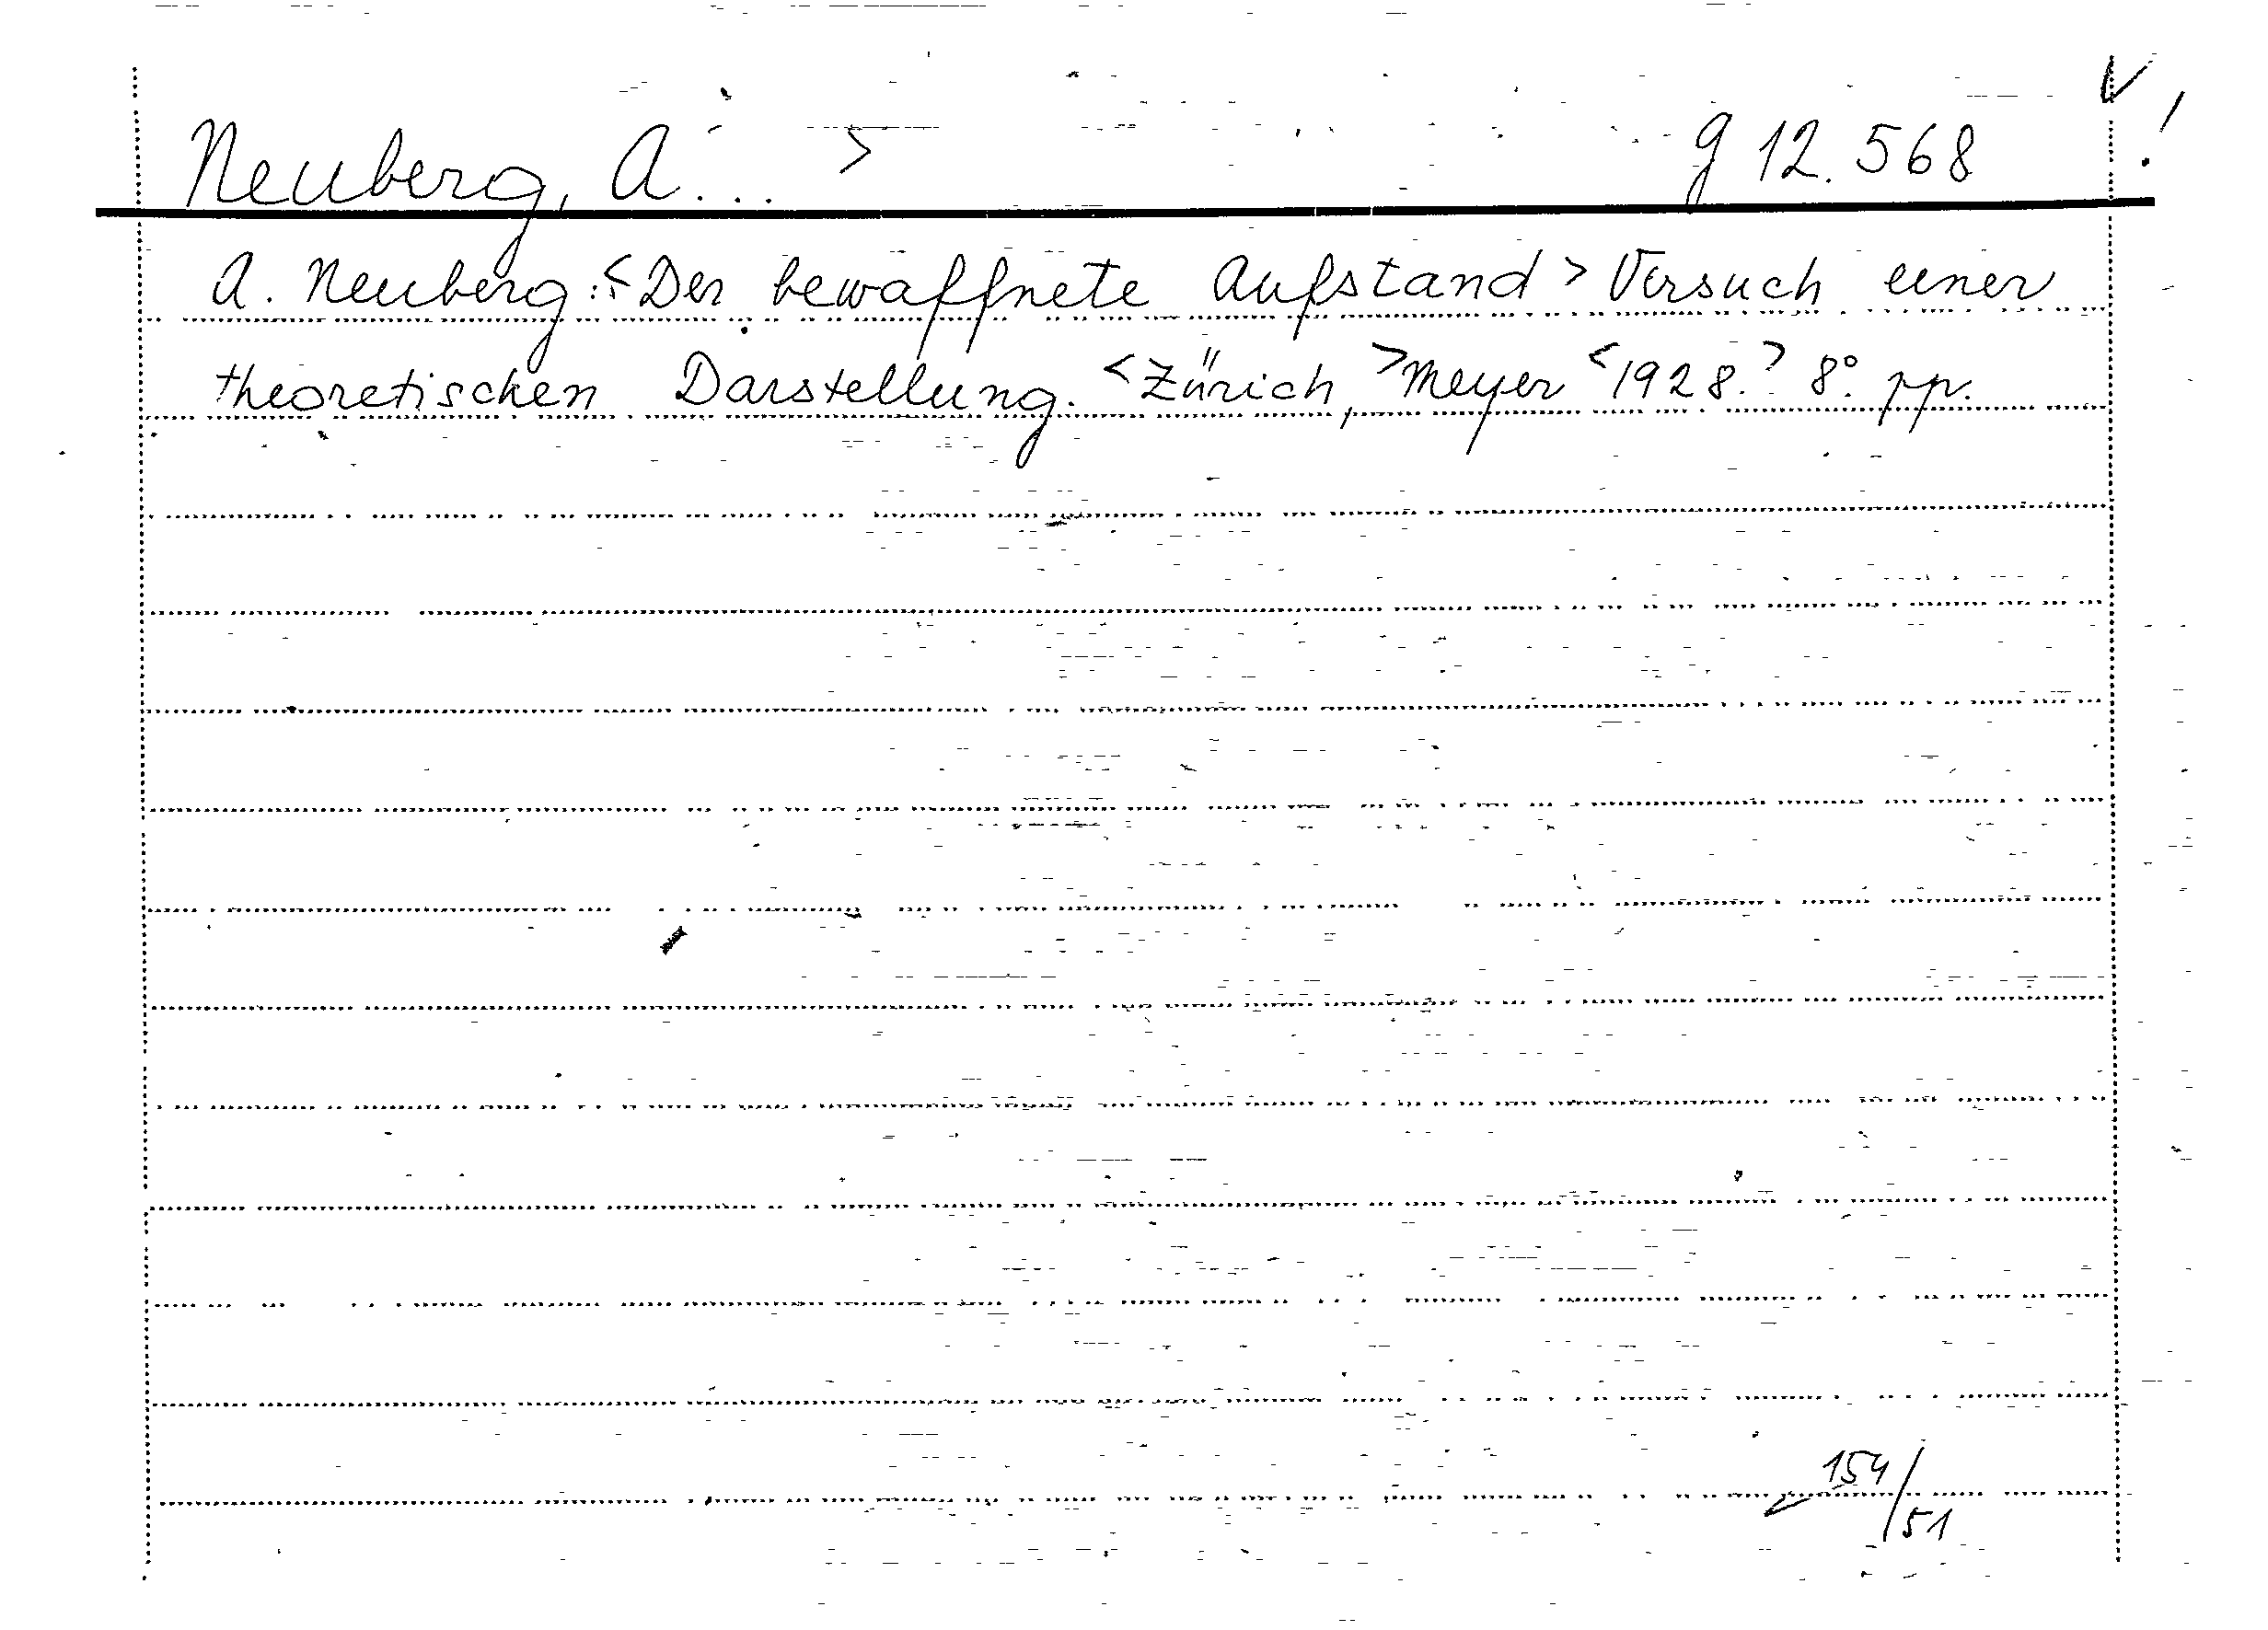 Neuberg, A... > g 12.568 !
A. Neuberg: <Der bewaffnete Aufstand> Versuch einer
theoretischen Darstellung. <Zürich,> Meyer <1928.> 8°. pp.
154/51